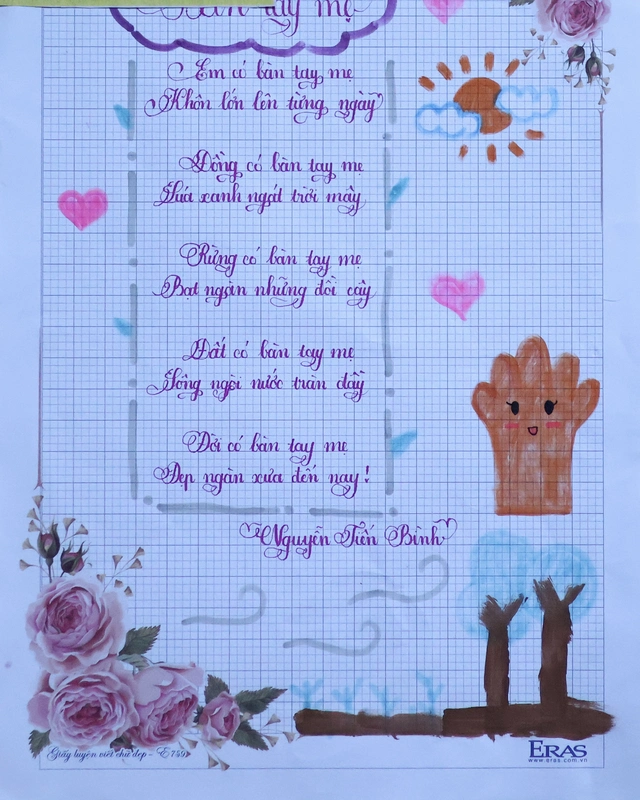 Bàn tay mẹ
Em có bàn tay mẹ
Khôn lớn lên từng ngày
Đồng có bàn tay mẹ
Lúa xanh ngát trời mây
Rừng có bàn tay mẹ
Bạt ngàn những đồi cây
Đất có bàn tay mẹ
Sông ngòi nước tràn đầy
Đời có bàn tay mẹ
Đẹp ngàn xưa đến nay!
Nguyễn Tiến Bình
Giấy luyện viết chữ đẹp - E749
ERAS
www.eras.com.vn